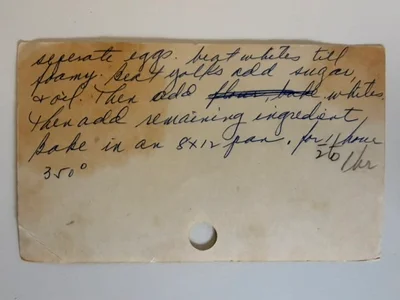 seperate eggs. beat whites till
foamy. Beat yolks add sugar,
& oil. Then add flour, bake whites.
& then add remaining ingredient,
Bake in an 8x12 pan. for 1 hour
350° 20 1 hr